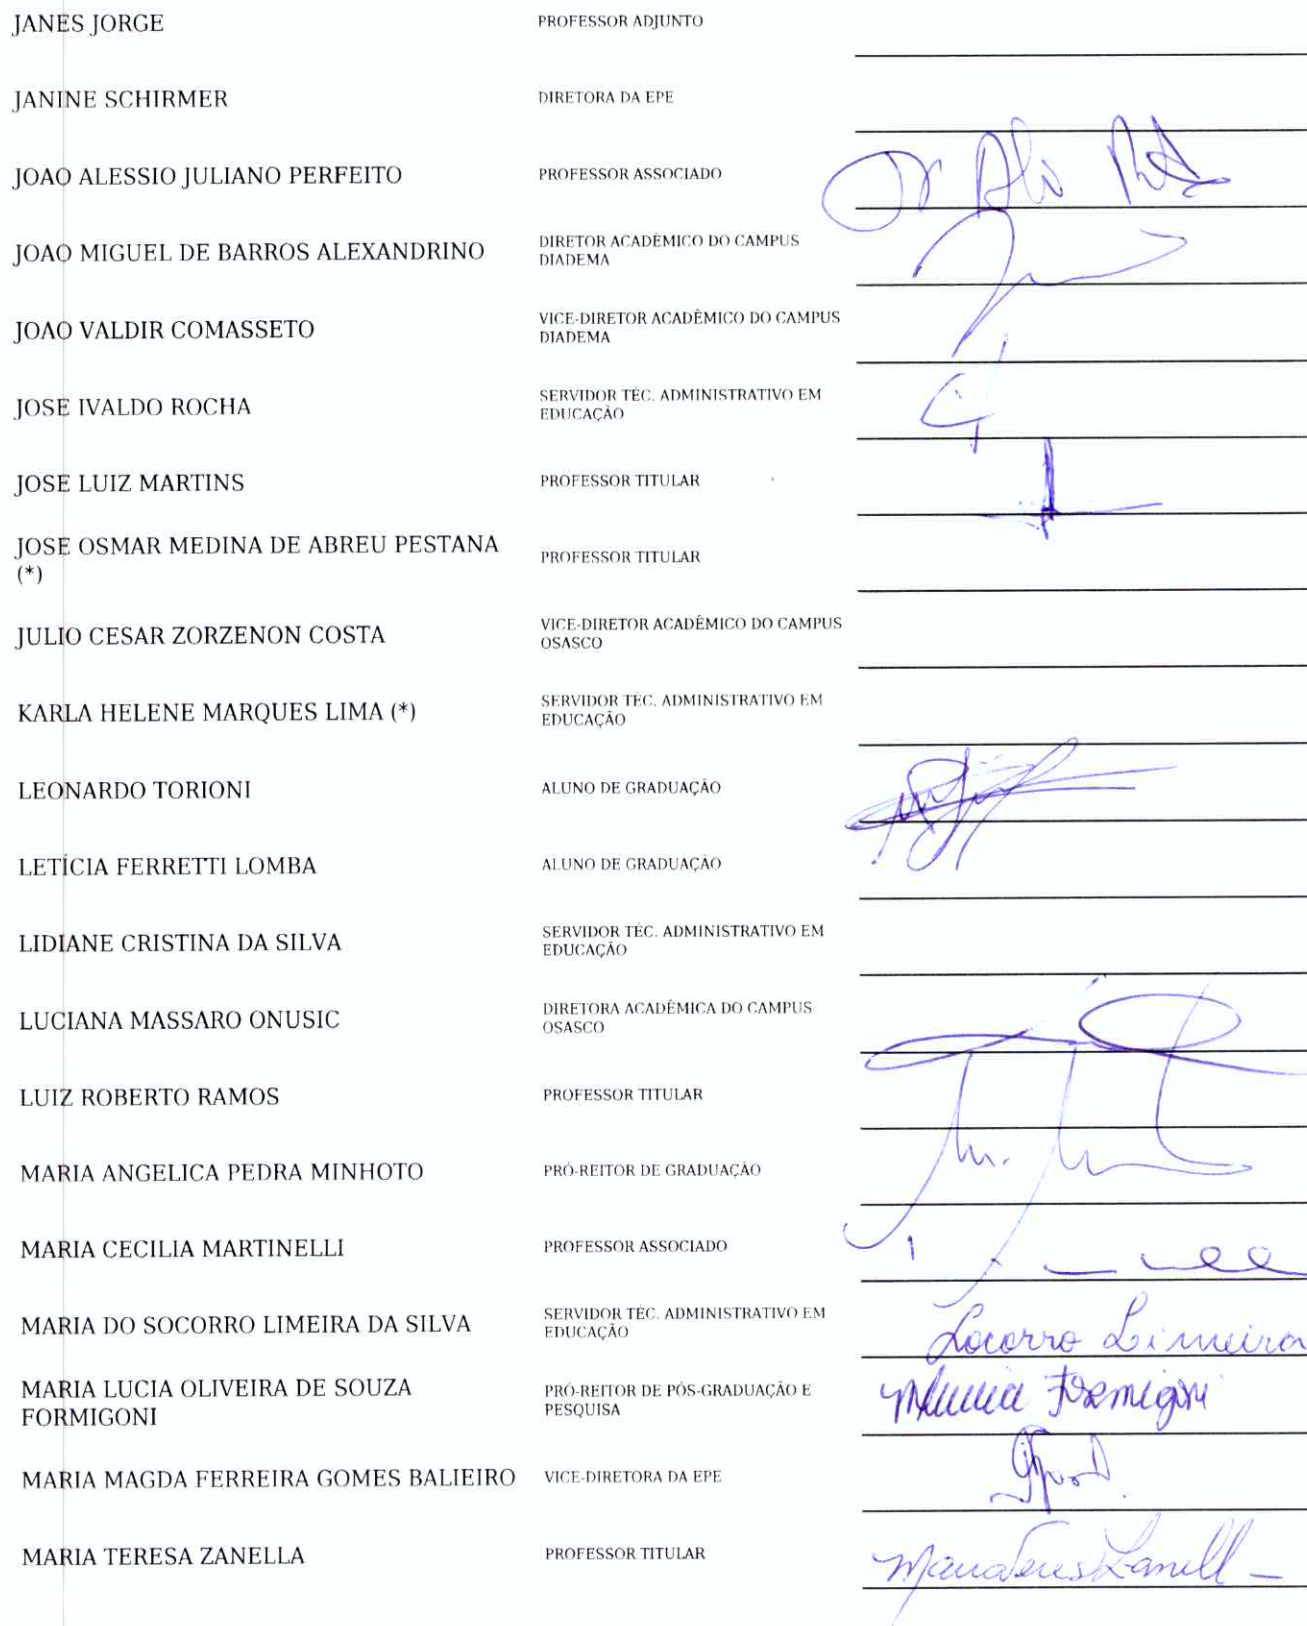 JANES JORGE PROFESSOR ADJUNTO
JANINE SCHIRMER DIRETORA DA EPE
JOAO ALESSIO JULIANO PERFEITO PROFESSOR ASSOCIADO
JOAO MIGUEL DE BARROS ALEXANDRINO DIRETOR ACADÊMICO DO CAMPUS
DIADEMA
JOAO VALDIR COMASSETO VICE-DIRETOR ACADÊMICO DO CAMPUS
DIADEMA
JOSE IVALDO ROCHA SERVIDOR TÉC. ADMINISTRATIVO EM
EDUCAÇÃO
JOSE LUIZ MARTINS PROFESSOR TITULAR
JOSE OSMAR MEDINA DE ABREU PESTANA
(*) PROFESSOR TITULAR
JULIO CESAR ZORZENON COSTA VICE-DIRETOR ACADÊMICO DO CAMPUS
OSASCO
KARLA HELENE MARQUES LIMA (*) SERVIDOR TÉC. ADMINISTRATIVO EM
EDUCAÇÃO
LEONARDO TORIONI ALUNO DE GRADUAÇÃO
LETÍCIA FERRETTI LOMBA ALUNO DE GRADUAÇÃO
LIDIANE CRISTINA DA SILVA SERVIDOR TÉC. ADMINISTRATIVO EM
EDUCAÇÃO
LUCIANA MASSARO ONUSIC DIRETORA ACADÊMICA DO CAMPUS
OSASCO
LUIZ ROBERTO RAMOS PROFESSOR TITULAR
MARIA ANGELICA PEDRA MINHOTO PRÓ-REITOR DE GRADUAÇÃO
MARIA CECILIA MARTINELLI PROFESSOR ASSOCIADO
MARIA DO SOCORRO LIMEIRA DA SILVA SERVIDOR TÉC. ADMINISTRATIVO EM
EDUCAÇÃO Socorro Limeira
MARIA LUCIA OLIVEIRA DE SOUZA PRÓ-REITOR DE PÓS-GRADUAÇÃO E
FORMIGONI PESQUISA Formigoni
MARIA MAGDA FERREIRA GOMES BALIEIRO VICE-DIRETORA DA EPE
MARIA TERESA ZANELLA PROFESSOR TITULAR